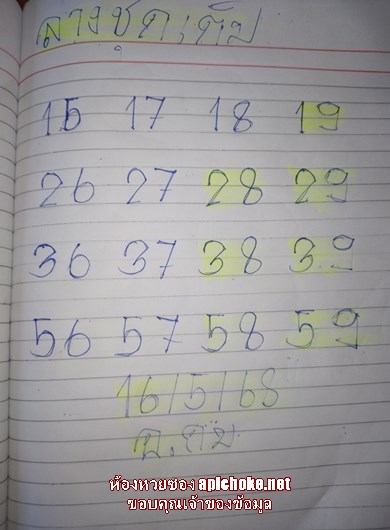 ลางชุด,ดับ
15 17 18 19
26 27 28 29
36 37 38 39
56 57 58 59
16/5/68
ห้องหวยซอง apichoke.net
ขอบคุณเจ้าของข้อมูล